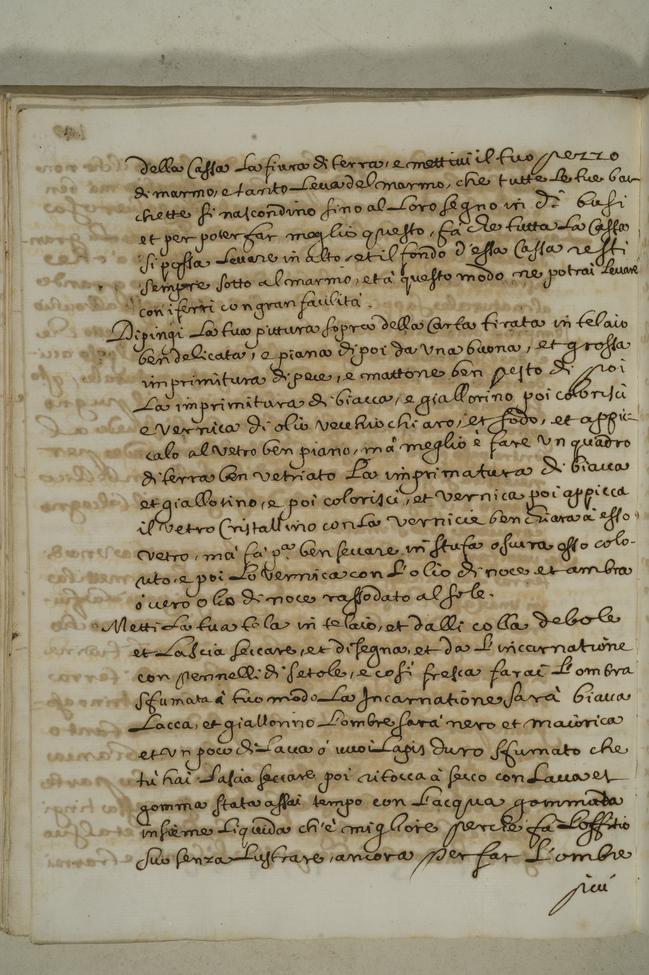 della Cassa La fiura di terra, e mettivi il tuo pezzo
di marmo, e tanto Leva del marmo, che tutte Le tue bac
chette si nascondino fino al Loro segno in d.ⁱ busi
et per poter far meglio questo, fà che tutta La Cassa
si possa Levare in alto, et il fondo d'essa Cassa resti
sempre sotto al marmo, et à questo modo ne potrai Levare
con i ferri con gran faulità.
Dipingi La tua pittura sopra della Carta tirata in telaio
ben delicata, e piana di poi da una buona, et grossa
imprimitura di pece, e mattone ben pesto di poi
La imprimitura di biacca, e giallorino poi colorisci
e vernica di olio vecchio chiaro, et sodo, et appic
calo al vetro ben piano, mà meglio è fare un quadro
di terra ben vetriato La imprimatura di biacca
et giallolino, e poi colorisci, et vernica poi appicca
il vetro Cristallino con La vernicie ben chiara à esso
vetro, mà fà p.ᵃ ben seccare in stufa oscura esso colo-
rito, e poi Lo vernica con L'olio di noce et ambra
ò vero olio di noce rassodato al sole.
Metti La tua tela in telaio, et dalli colla debole
et Lascia seccare, et disegna, et da L'incarnatione
con pennelli di setole, e così fresca farai L'ombra
sfumata à tuo modo La Incarnatione sarà biacca
Lacca, et giallorino L'ombre sarà nero et maiorica
et un poco di Lacca ò vuoi Lapis duro sfumato che
tù hai Lascia seccare, poi ritocca à secco con Lacca et
gomma stata assai tempo con L'acqua gommata
insieme Liquida ch'è migliore perche fà L'offitio
suo senza Lustrare, ancora per far L'ombre